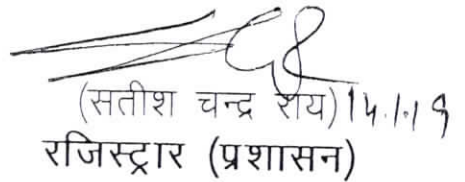 (सतीश चन्द्र राय) 14.1.19
रजिस्ट्रार (प्रशासन)